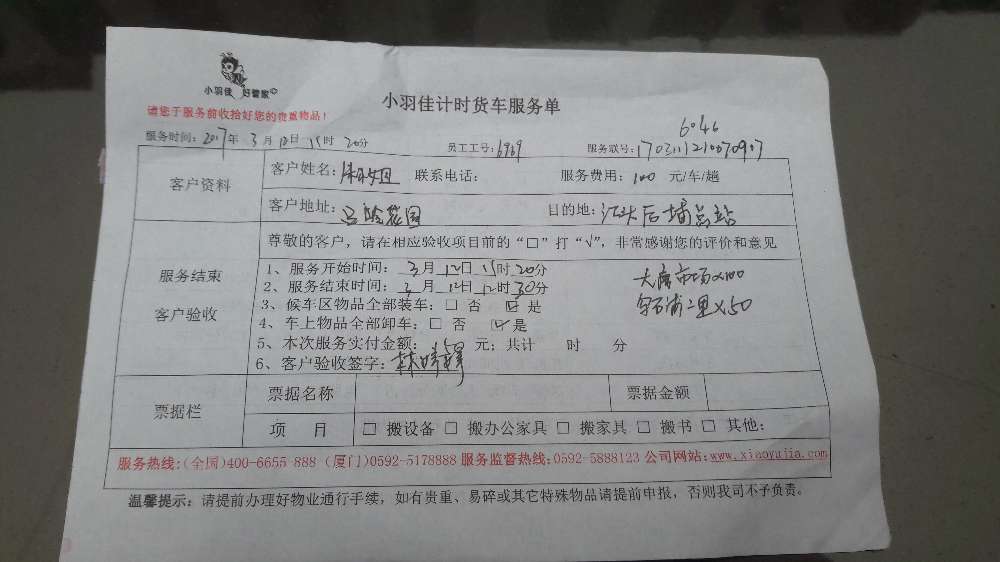 小羽佳 好管家
小羽佳计时货车服务单
请您于服务前收拾好您的贵重物品!
6046
服务时间: 2017年 3月 12日 15时 20分 员工工号: 6969 服务联号:
客户资料
客户姓名: 联系电话: 服务费用: 100 元/车/趟
客户地址: 吕岭花园 目的地: 江头后埔总站
服务结束
客户验收
尊敬的客户，请在相应验收项目前的“□”打“√”，非常感谢您的评价和意见
1、服务开始时间: 3月 12日 15时 20分
2、服务结束时间: 3月 12日 时 30分
3、候车区物品全部装车: □ 否 ☑ 是
4、车上物品全部卸车: □ 否 ☑ 是
5、本次服务实付金额: 元; 共计 时 分
6、客户验收签字:
市场x100
二里x50
票据栏
票据名称 票据金额
项 目 □ 搬设备 □ 搬办公家具 □ 搬家具 □ 搬书 □ 其他:
服务热线:(全国)400-6655-888 (厦门)0592-5178888 服务监督热线:0592-5888123 公司网站:www.xiaoyujia.com
温馨提示: 请提前办理好物业通行手续，如有贵重、易碎或其它特殊物品请提前申报，否则我司不予负责。